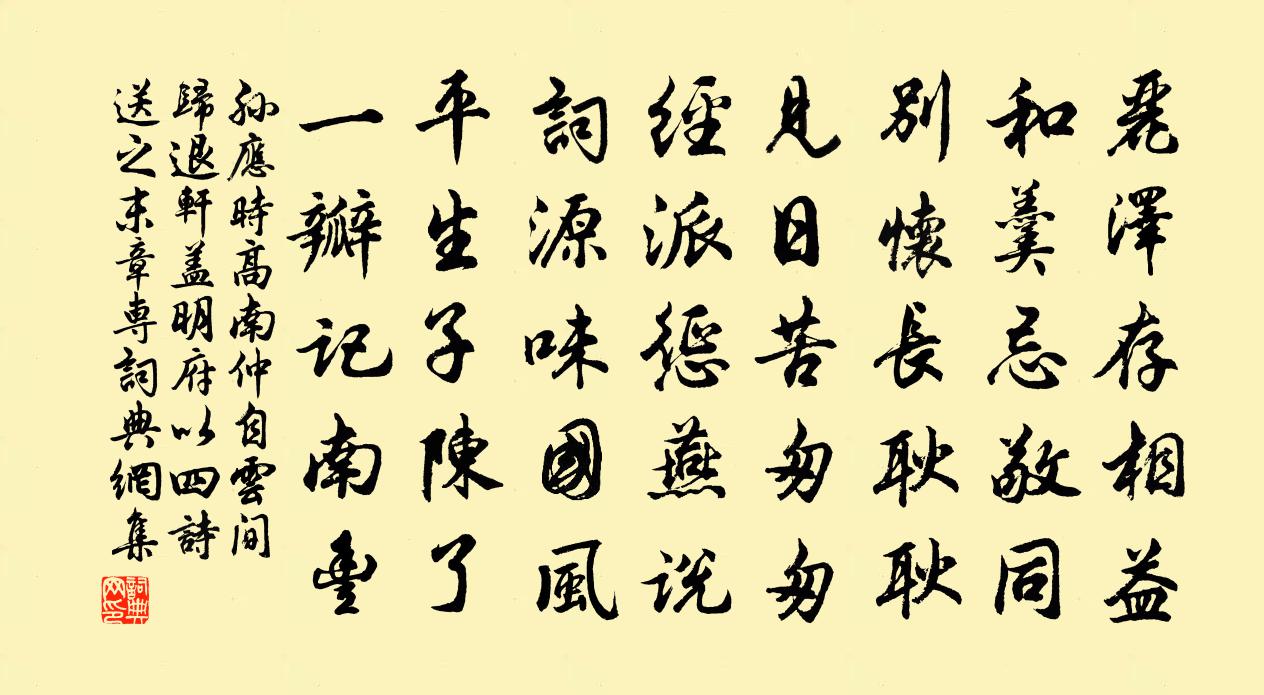 麗澤存相益
和羹忌敢同
別懷長耿耿
見日苦匆匆
經派懲燕說
詞源味國風
平生子陳了
一瓣記南豐
孫應時高南仲自雲間
歸退軒蓋明府以四詩
送之末章專詞典網集